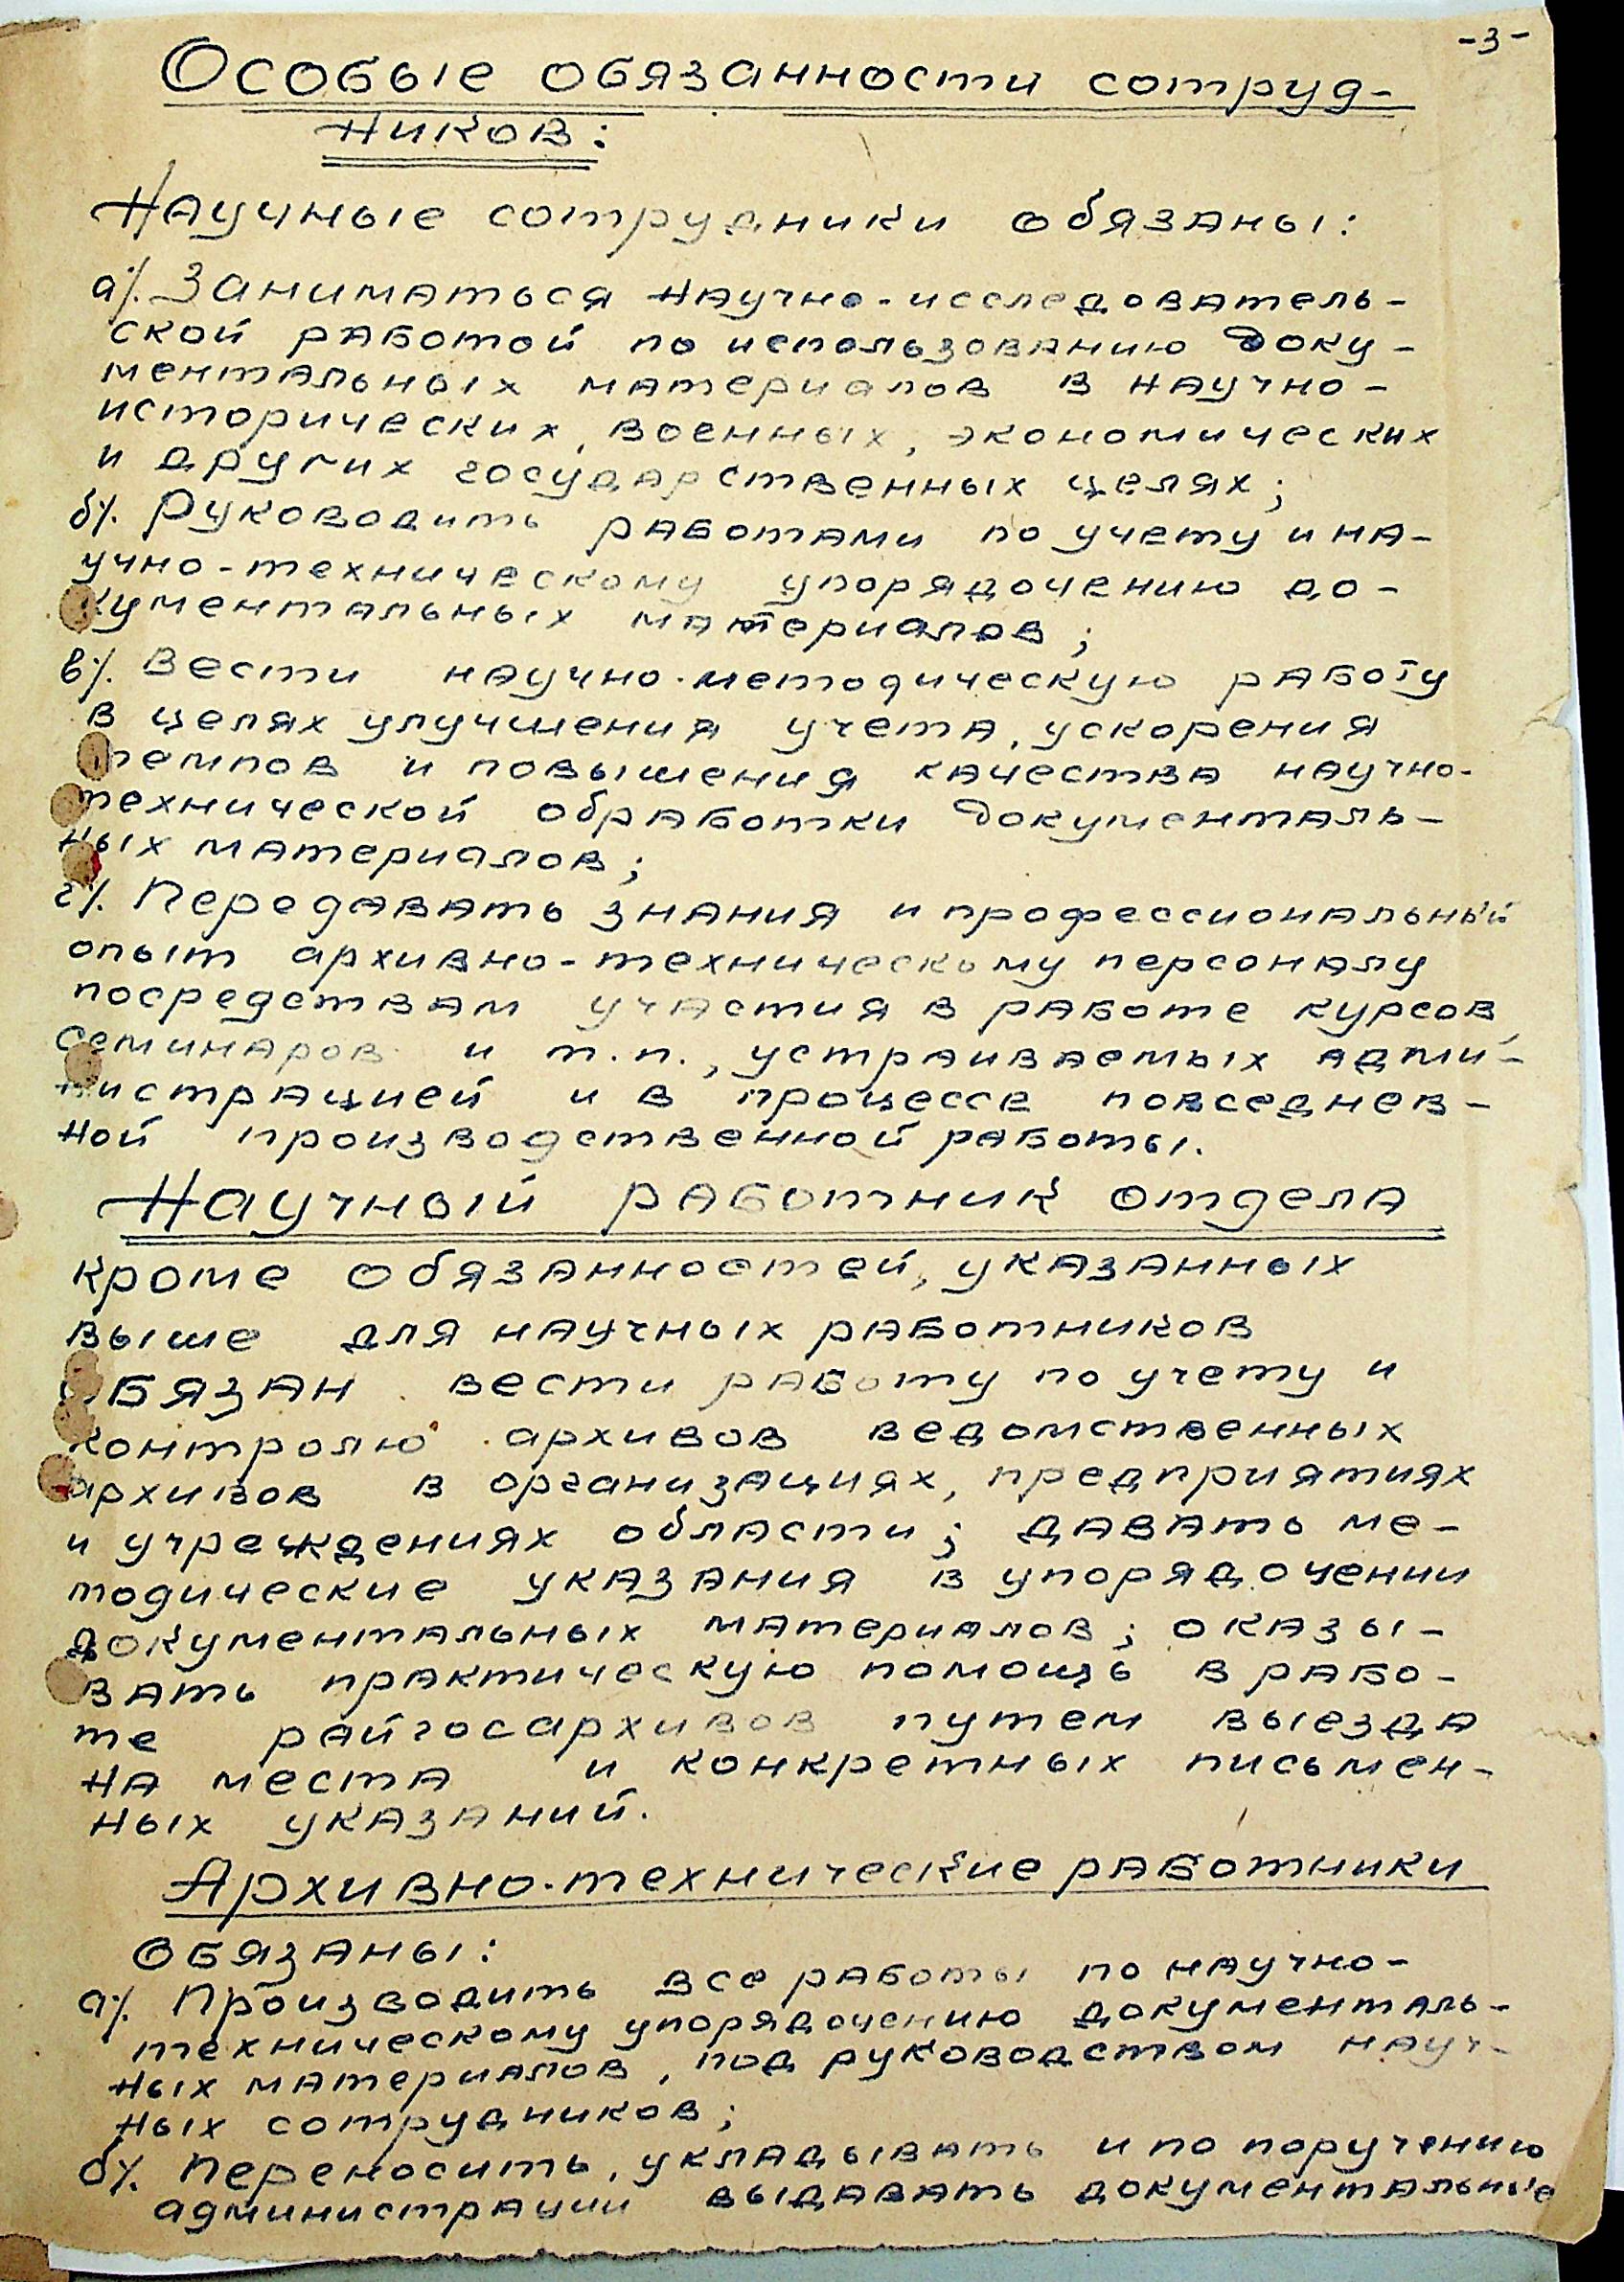 -3-
Особые обязанности сотруд-
ников:
Научные сотрудники обязаны:
а/. Заниматься научно-исследователь-
ской работой по использованию доку-
ментальных материалов в научно-
исторических, военных, экономических
и других государственных целях;
б/. Руководить работами по учету и на-
учно-техническому упорядочению до-
кументальных материалов;
в/. Вести научно-методическую работу
в целях улучшения учета, ускорения
темпов и повышения качества научно-
технической обработки документаль-
ных материалов;
г/. Передавать знания и профессиональный
опыт архивно-техническому персоналу
посредствам участия в работе курсов
семинаров и т.п., устраиваемых адми-
нистрацией и в процессе повседнев-
ной производственной работы.
Научный работник отдела
кроме обязанностей, указанных
выше для научных работников
обязан вести работу по учету и
контролю архивов ведомственных
архивов в организациях, предприятиях
и учреждениях области; давать ме-
тодические указания в упорядочении
документальных материалов; оказы-
вать практическую помощь в рабо-
те райгосархивов путем выезда
на места и конкретных письмен-
ных указаний.
Архивно-технические работники
обязаны:
а/. Производить все работы по научно-
техническому упорядочению документаль-
ных материалов, под руководством науч-
ных сотрудников;
б/. Переносить, укладывать и по поручению
администрации выдавать документальные